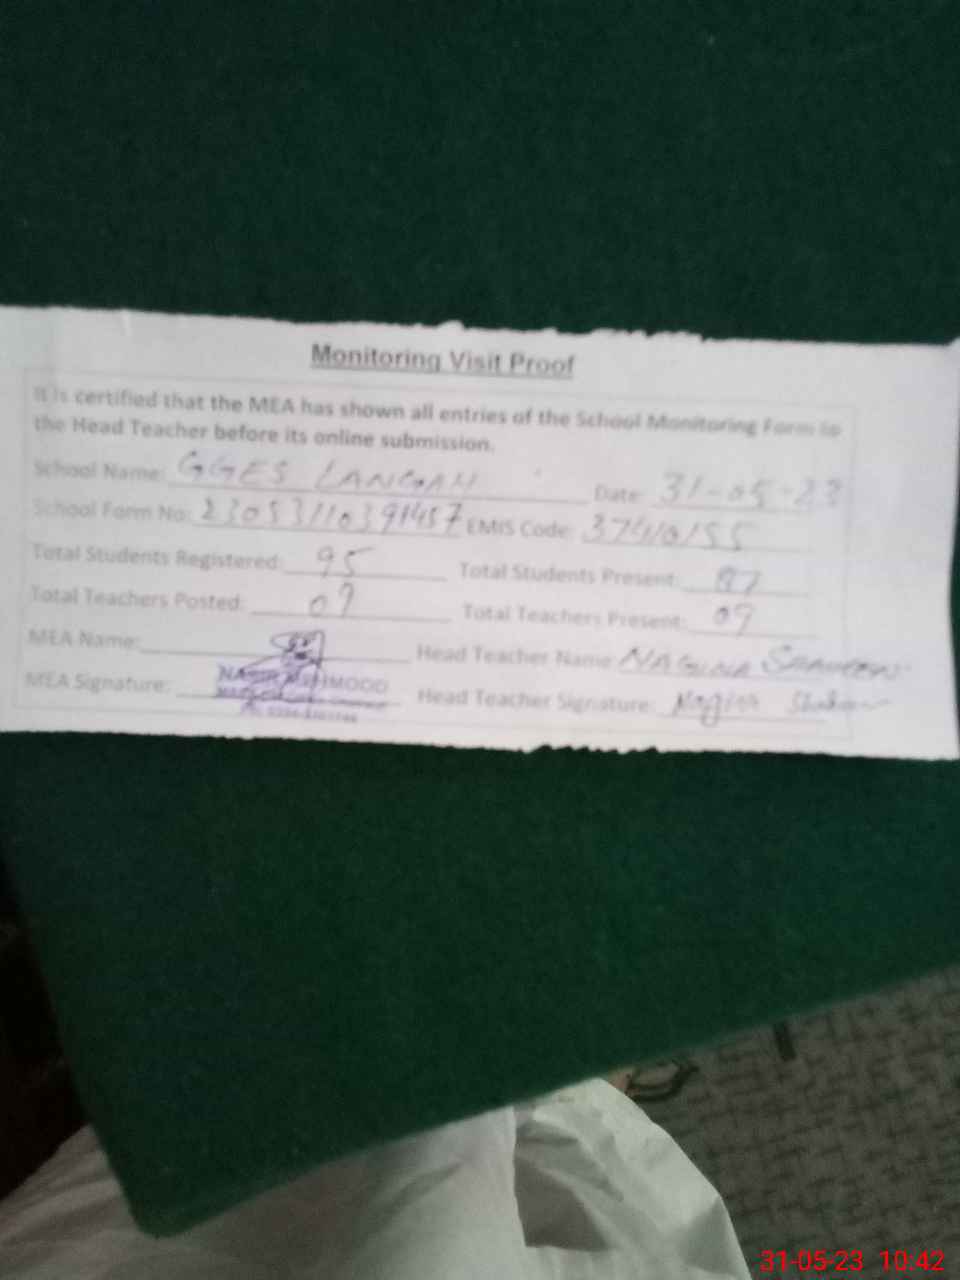 Monitoring Visit Proof
It is certified that the MEA has shown all entries of the School Monitoring Form to
the Head Teacher before its online submission.
School Name: GGES LANGAH Date: 31-05-23
School Form No: 23053110391457 EMIS Code: 37410155
Total Students Registered: 95 Total Students Present: 87
Total Teachers Posted: 09 Total Teachers Present: 09
MEA Name: Head Teacher Name: NAGINA SHAHEEN
MEA Signature: NASIR MEHMOOD Head Teacher Signature: Nagina Shaheen
31-05-23 10:42